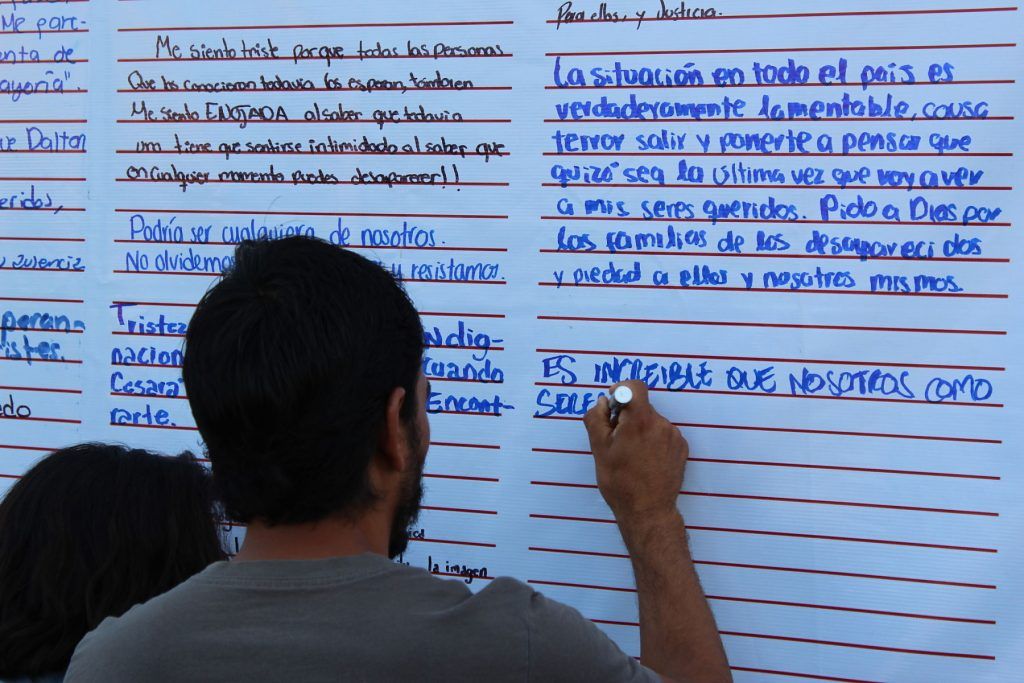 Me part-
enta de
ayoría".
ue Dalton
eridos,
peran-
istes.
Me siento triste porque todas las personas
Que los conocieron todavía los esperan, también
Me siento ENOJADA al saber que todavía
um tiene que sentirse intimidado al saber que
en cualquier momento puedes desaparecer!!
Podría ser cualquiera de nosotros.
No olvidemos y resistamos.
Tristez Ndig-
nacion cuando
Cesara Encont-
rarte.
la imagen
Para ellos, y Justicia.
La situación en todo el país es
verdaderamente lamentable, causa
terror salir y ponerte a pensar que
quizá sea la última vez que voy a ver
a mis seres queridos. Pido a Dios por
las familias de los desaparecidos
y piedad a ellos y nosotros mismos.
ES INCREIBLE QUE NOSOTROS COMO
SERE